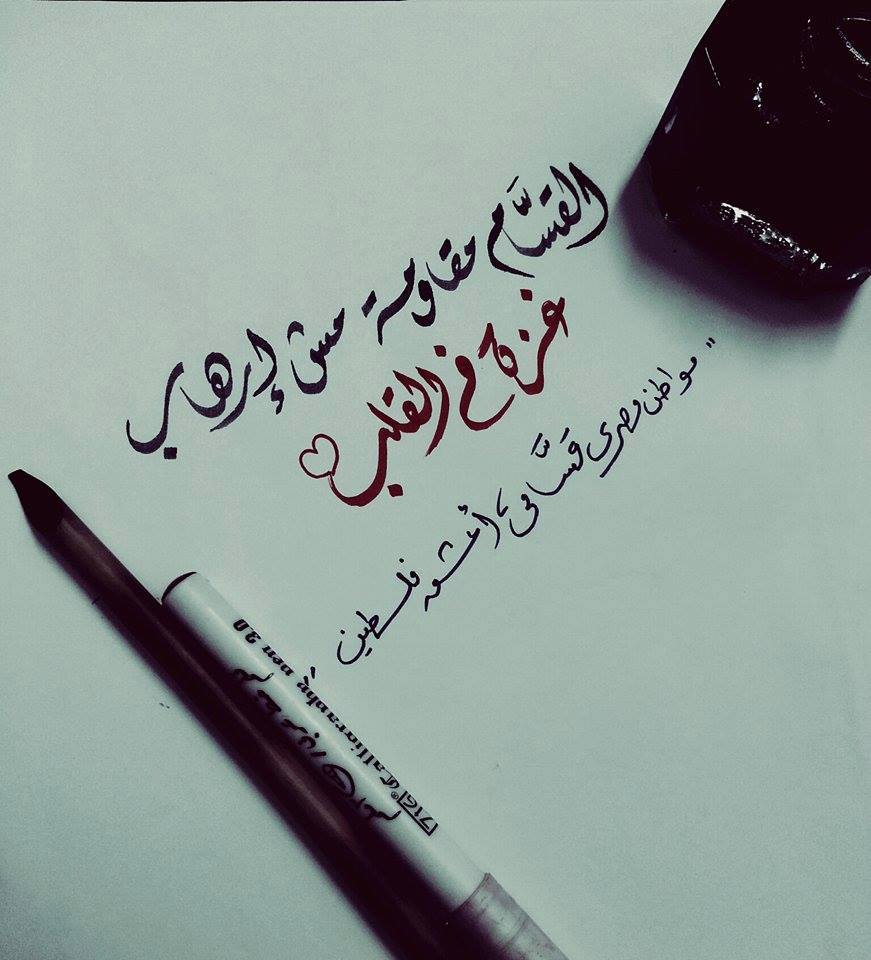 القسَّام مقاومة مش إرهاب
غزة في القلب
" مواطن مصرى قَسَّامي، أعشق فلسطين
ZIG® Calligraphy pen 2.0